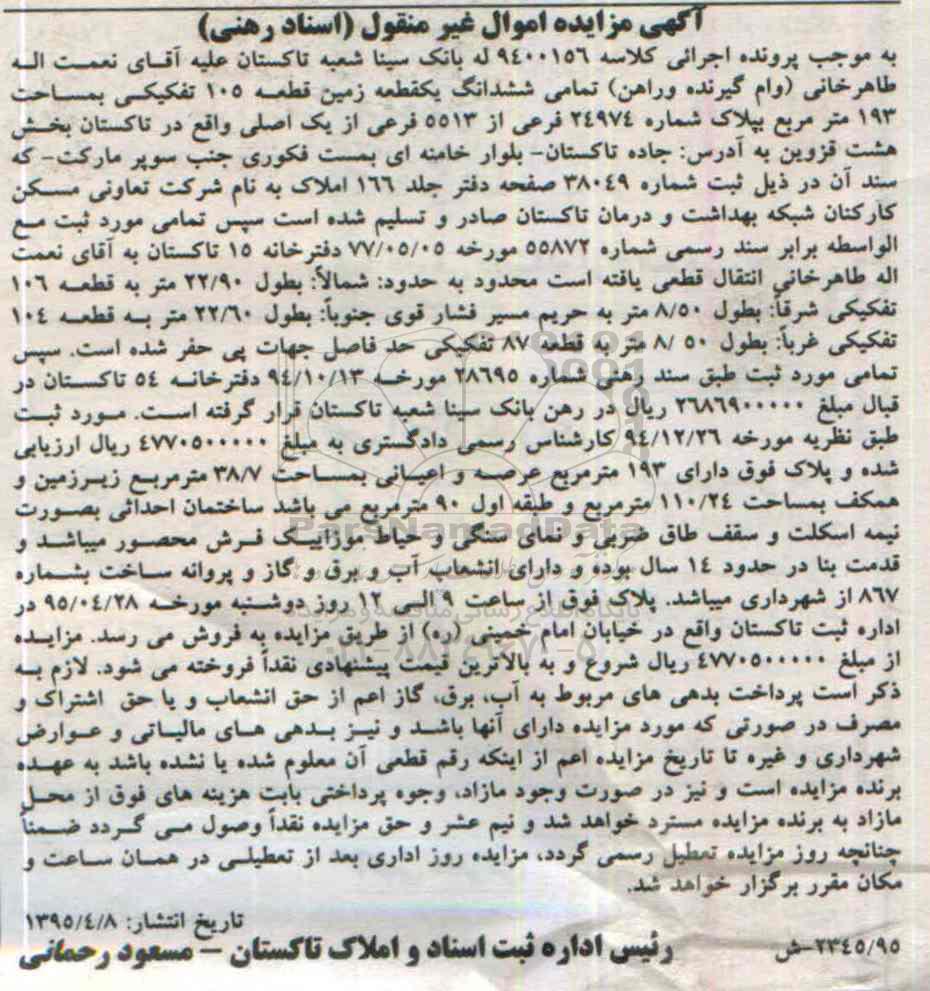 آگهی مزایده اموال غیر منقول (اسناد رهنی)
به موجب پرونده اجرائی کلاسه ۹٤۰۰۱٥٦ له بانک سینا شعبه تاکستان علیه آقـای نعمـت الـه
طاهرخانی (وام گیرنده وراهن) تمامی ششدانگ یکقطعه زمین قطعـه ۱۰٥ تفکیکـی بمسـاحت
۱۹۳ متر مربع بپلاک شماره ۲٤۹۷٤ فرعی از ٥٥۱۳ فرعی از یک اصلی واقع در تاکستان بخـش
هشت قزوین به آدرس: جاده تاکستان- بلوار خامنه ای بمست فکوری جنب سوپر مارکت- که
سند آن در ذیل ثبت شماره ۳۸۰٤۹ صفحه دفتر جلد ۱٦٦ املاک به نام شرکت تعاونی مسـکن
کارکنان شبکه بهداشت و درمان تاکستان صادر و تسلیم شده است سپس تمامی مورد ثبت مـع
الواسطه برابر سند رسمی شماره ٥٥۸۷۲ مورخه ۷۷/۰٥/۰٥ دفترخانه ۱٥ تاکستان به آقای نعمت
اله طاهرخانی انتقال قطعی یافته است محدود به حدود: شمالاً: بطول ۲۲/۹۰ متر به قطعـه ۱۰٦
تفکیکی شرقاً: بطول ۸/٥۰ متر به حریم مسیر فشار قوی جنوباً: بطول ۲۲/٦۰ متر بـه قطعـه ۱۰٤
تفکیکی غرباً: بطول ٥۰ /۸ متر به قطعه ۸۷ تفکیکی حد فاصل جهات پی حفر شده است. سپس
تمامی مورد ثبت طبق سند رهنی شماره ۲۸٦۹٥ مورخـه ۹٤/۱۰/۱۳ دفترخانـه ٥٤ تاکسـتان در
قبال مبلغ ۲٦۸٦۹۰۰۰۰۰ ریال در رهن بانک سینا شعبه تاکستان قرار گرفته اسـت. مـورد ثبـت
طبق نظریه مورخه ۹٤/۱۲/۲٦ کارشناس رسمی دادگستری به مبلغ ٤۷۷۰٥۰۰۰۰۰ ریال ارزیابی
شده و پلاک فوق دارای ۱۹۳ مترمربع عرصـه و اعیـانی بمسـاحت ۳۸/۷ مترمربـع زیـرزمین و
همکف بمساحت ۱۱۰/۲٤ مترمربع و طبقه اول ۹۰ مترمربع می باشد ساختمان احداثی بصـورت
نیمه اسکلت و سقف طاق ضربی و نمای سنگی و حیاط موزاییـک فـرش محصـور میباشـد و
قدمت بنا در حدود ۱٤ سال بوده و دارای انشعاب آب و برق و گاز و پروانه سـاخت بشـماره
۸٦۷ از شهرداری میباشد. پلاک فوق از ساعت ۹ الـی ۱۲ روز دوشـنبه مورخـه ۹٥/۰٤/۲۸ در
اداره ثبت تاکستان واقع در خیابان امام خمینی (ره) از طریق مزایده به فروش می رسد. مزایـده
از مبلغ ٤۷۷۰٥۰۰۰۰۰ ریال شروع و به بالاترین قیمت پیشنهادی نقداً فروخته می شود. لازم بـه
ذکر است پرداخت بدهی های مربوط به آب، برق، گاز اعم از حق انشعاب و یا حق اشتراک و
مصرف در صورتی که مورد مزایده دارای آنها باشـد و نیـز بـدهی هـای مالیـاتی و عـوارض
شهرداری و غیره تا تاریخ مزایده اعم از اینکه رقم قطعی آن معلوم شده یا نشده باشد به عهـده
برنده مزایده است و نیز در صورت وجود مازاد، وجوه پرداختی بابت هزینه های فوق از محـل
مازاد به برنده مزایده مسترد خواهد شد و نیم عشر و حق مزایده نقداً وصول مـی گـردد ضـمناً
چنانچه روز مزایده تعطیل رسمی گردد، مزایده روز اداری بعد از تعطیلـی در همـان سـاعت و
مکان مقرر برگزار خواهد شد.
تاریخ انتشار: ۱۳۹٥/٤/۸
رئیس اداره ثبت اسناد و املاک تاکستان – مسعود رحمانی
۲۳٤٥/۹٥-ش
ParsNamadData